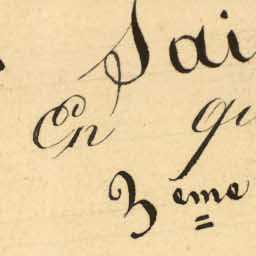 Sai
En qu
3 eme